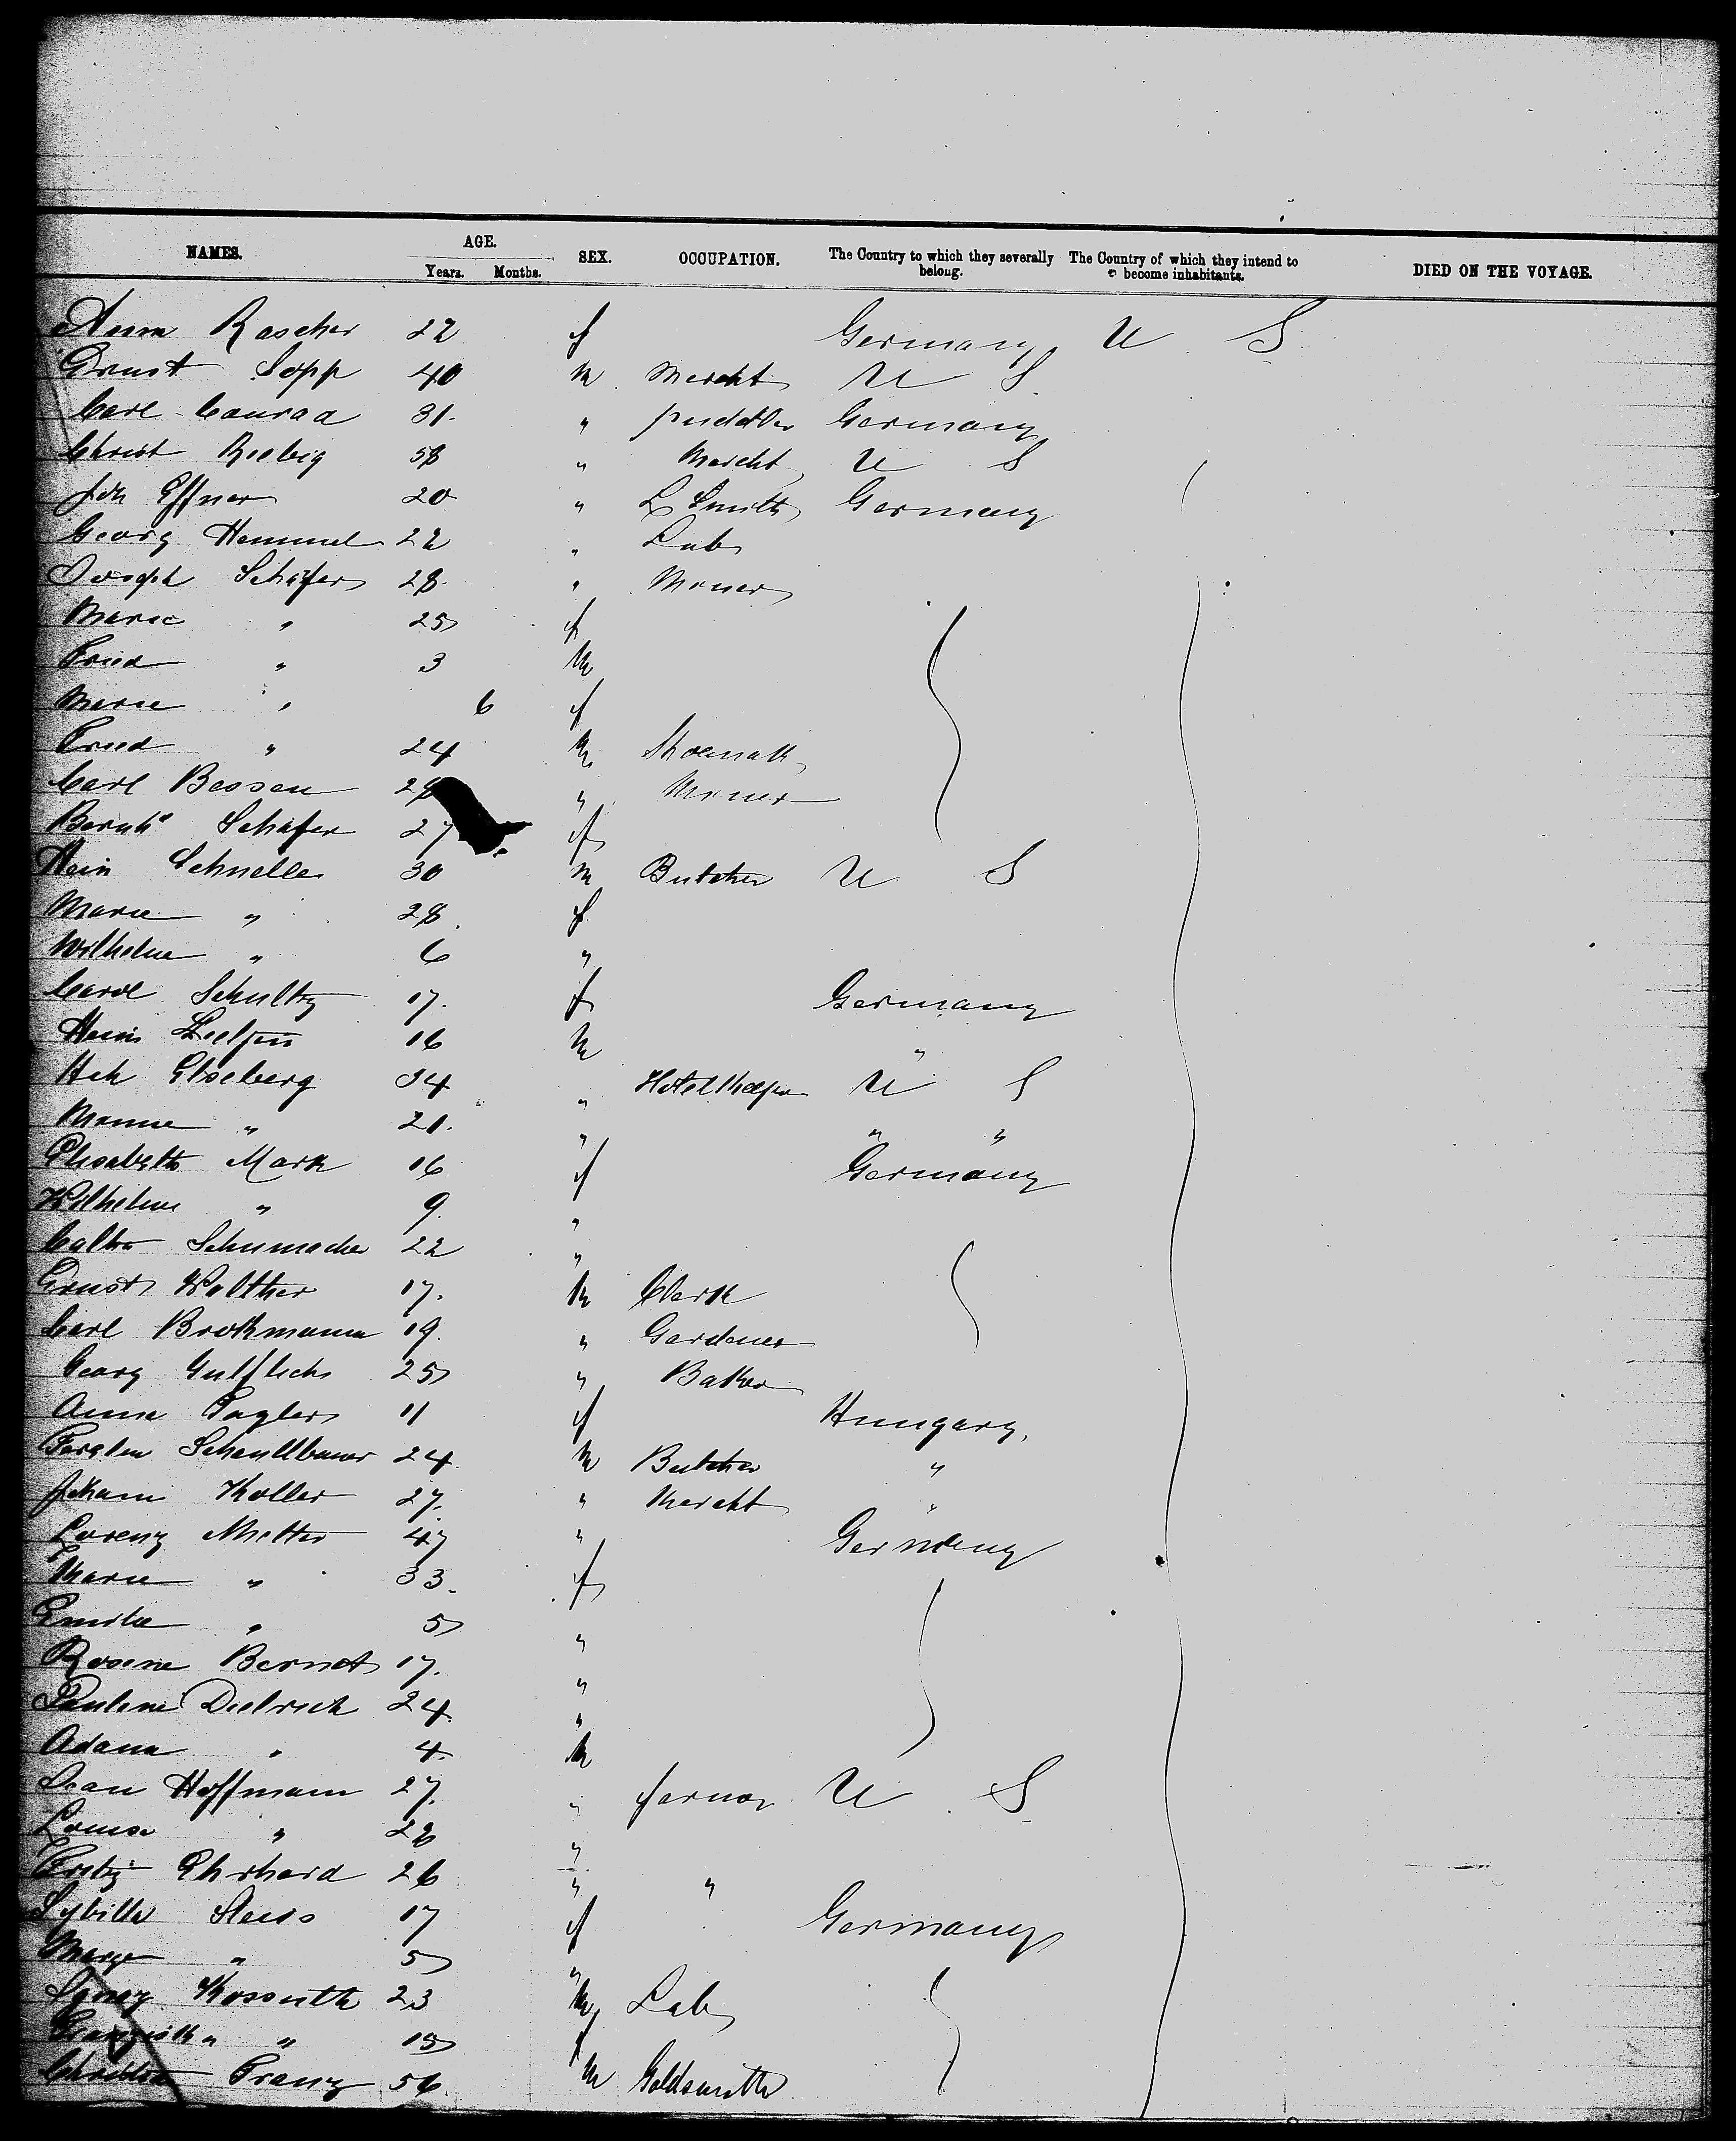 NAMES. AGE. Years. Months. SEX. OCCUPATION. The Country to which they severally belong. The Country of which they intend to become inhabitants. DIED ON THE VOYAGE.
Anna Rascher 22 f Germany U S
Ernst Sopp 40 m Mercht U S
Carl Conrad 31 " puddler Germany
Christ Reebig 58 " Mercht U S
Joh Effner 20 " L Smith Germany
Georg Hemmel 22 " Lab
Joseph Schäfer 28 " Miner
Marie " 25 f
Fried " 3 m
Marie " 6 f
Fried " 24 m Shoemak
Carl Bessen 28 " Miner
Schäfer 27 f
Hein Schnelle 30 m Butcher U S
Marie " 28 f
Wilhelme " 6 "
Carol Schultz 17 f Germany
Hein 16 m "
Hch Elseberg 34 " Hotelkeeper U S
Minnie " 21 " " "
Elisabeth Mark 16 f Germany
Wilhelme " 9 "
Schumacher 22 "
Ernst Walther 17 m Clerk
Carl Brokmann 19 " Gardener
Georg 25 " Baker
Anna 11 f Hungary
24 m Butcher "
Johann Koller 27 " Mercht "
Lorenz 47 " Germany
Marie " 33 f
Emilie " 5 "
Rosine Bernet 17 "
Pauline Dietrich 24 "
Adam " 4 m
Jean Hoffmann 27 " farmer U S
Louise " 26 "
Ehrhard 26 " "
Sybilla 17 f Germany
" 5 "
Kossuth 23 m Lab
" 15 f
Franz 56 m Goldsmith